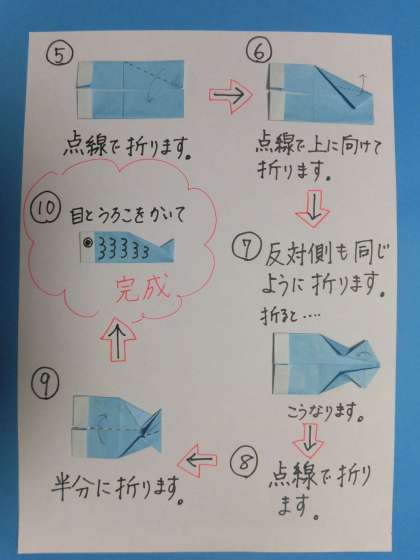 ⑤
点線で折ります。
⑥
点線で上に向けて
折ります。
⑦ 反対側も同じ
ように折ります。
折ると‥‥
こうなります。
⑧ 点線で折り
ます。
⑨
半分に折ります。
⑩ 目とうろこをかいて
完成